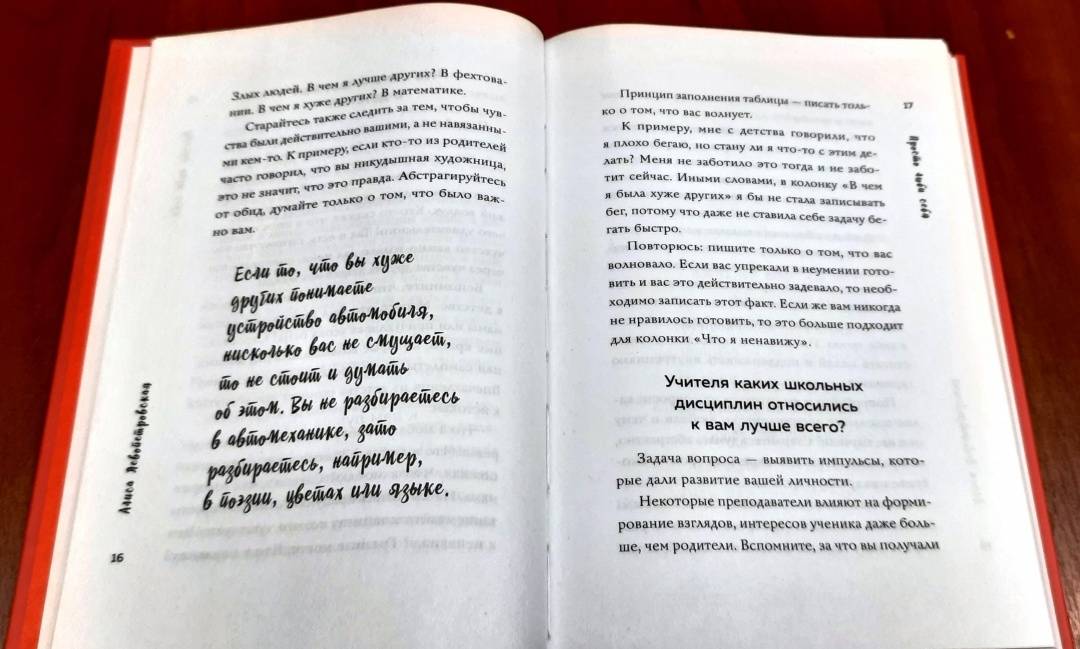 Злых людей. В чем я лучше других? В фехтова-
нии. В чем я хуже других? В математике.
Старайтесь также следить за тем, чтобы чув-
ства были действительно вашими, а не навязанны-
ми кем-то. К примеру, если кто-то из родителей
часто говорил, что вы никудышная художница,
это не значит, что это правда. Абстрагируйтесь
от обид, думайте только о том, что было важ-
но вам.
Если то, что вы хуже
других понимаете
устройство автомобиля,
нисколько вас не смущает,
то не стоит и думать
об этом. Вы не разбираетесь
в автомеханике, зато
разбираетесь, например,
в поэзии, цветах или языке.
Алиса Левопетровская
16
Принцип заполнения таблицы — писать толь-
ко о том, что вас волнует.
К примеру, мне с детства говорили, что
я плохо бегаю, но стану ли я что-то с этим де-
лать? Меня не заботило это тогда и не забо-
тит сейчас. Иными словами, в колонку «В чем
я была хуже других» я бы не стала записывать
бег, потому что даже не ставила себе задачу бе-
гать быстро.
Повторюсь: пишите только о том, что вас
волновало. Если вас упрекали в неумении гото-
вить и вас это действительно задевало, то необ-
ходимо записать этот факт. Если же вам никогда
не нравилось готовить, то это больше подходит
для колонки «Что я ненавижу».
Учителя каких школьных
дисциплин относились
к вам лучше всего?
Задача вопроса — выявить импульсы, кото-
рые дали развитие вашей личности.
Некоторые преподаватели влияют на форми-
рование взглядов, интересов ученика даже боль-
ше, чем родители. Вспомните, за что вы получали
17
Просто люби себя